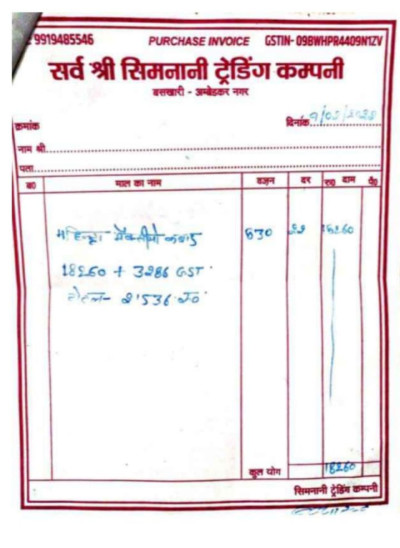 9919485546 PURCHASE INVOICE GSTIN- 09BWHPR4409N1ZV
सर्व श्री सिमनानी ट्रेडिंग कम्पनी
बसखारी - अम्बेडकर नगर
क्रमांक दिनांक
नाम श्री
पता
क्र0 माल का नाम वजन दर रू0 दाम पै0
महिन्द्रा कबाड़ 830 22 18260
18260 + 3286 GST
टोटल- 21536
कुल योग 18260
सिमनानी ट्रेडिंग कम्पनी